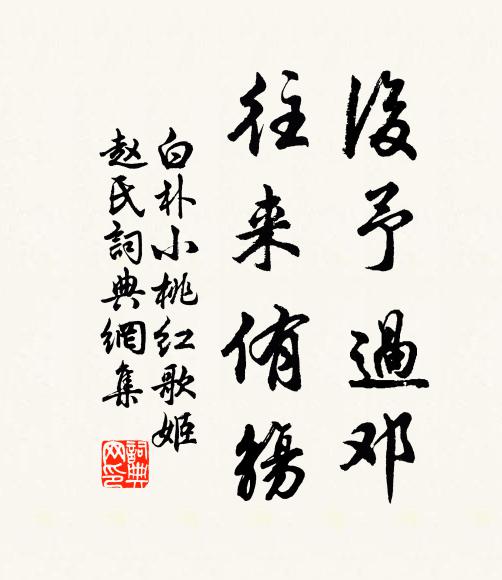 後予過邓
往来侑觴
白朴小桃红歌姬
赵氏詞典網集
詞典网印